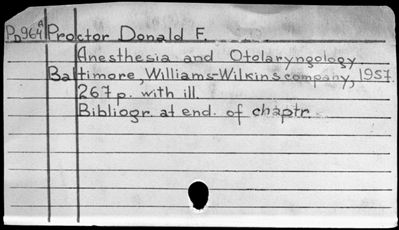 PD964A Proctor Donald F.
Anesthesia and Otolaryngology
Baltimore, Williams-Wilkins company, 1957.
267 p. with ill.
Bibliogr. at end. of chaptr.